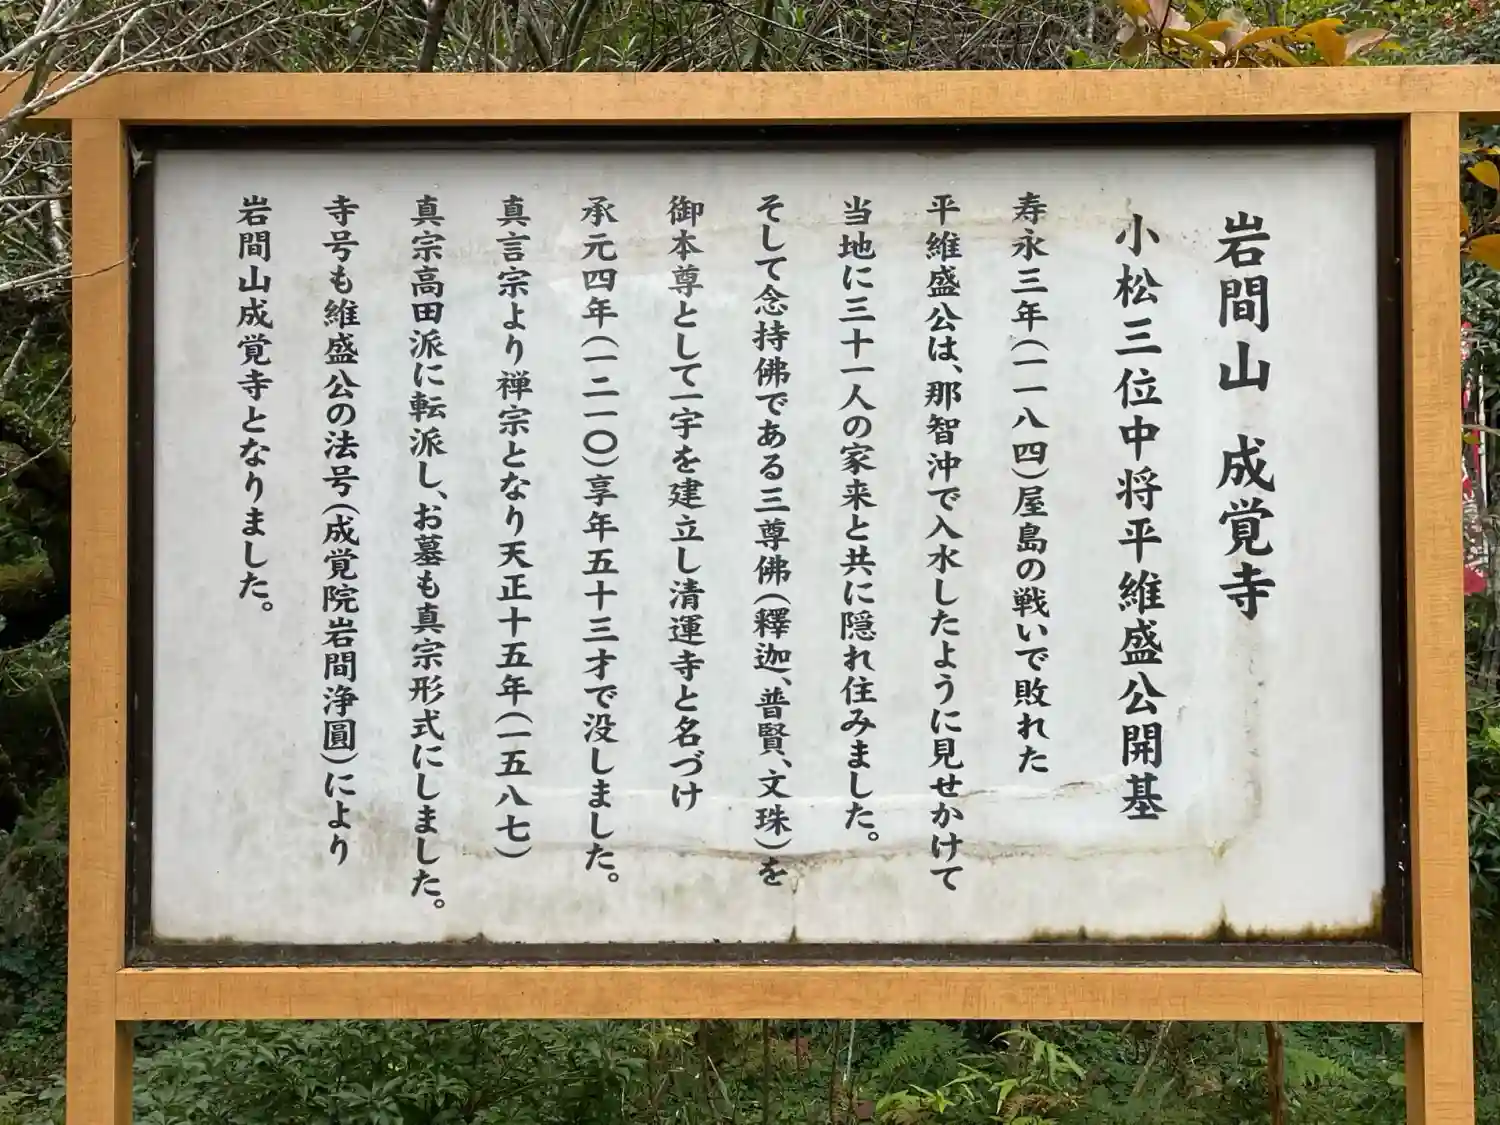 岩間山 成覚寺
小松三位中将平維盛公開基
寿永三年(一一八四)屋島の戦いで敗れた
平維盛公は、那智沖で入水したように見せかけて
当地に三十一人の家来と共に隠れ住みました。
そして念持佛である三尊佛(釋迦、普賢、文珠)を
御本尊として一宇を建立し清運寺と名づけ
承元四年(一二一〇)享年五十三才で没しました。
真言宗より禅宗となり天正十五年(一五八七)
真宗高田派に転派し、お墓も真宗形式にしました。
寺号も維盛公の法号(成覚院岩間浄圓)により
岩間山成覚寺となりました。